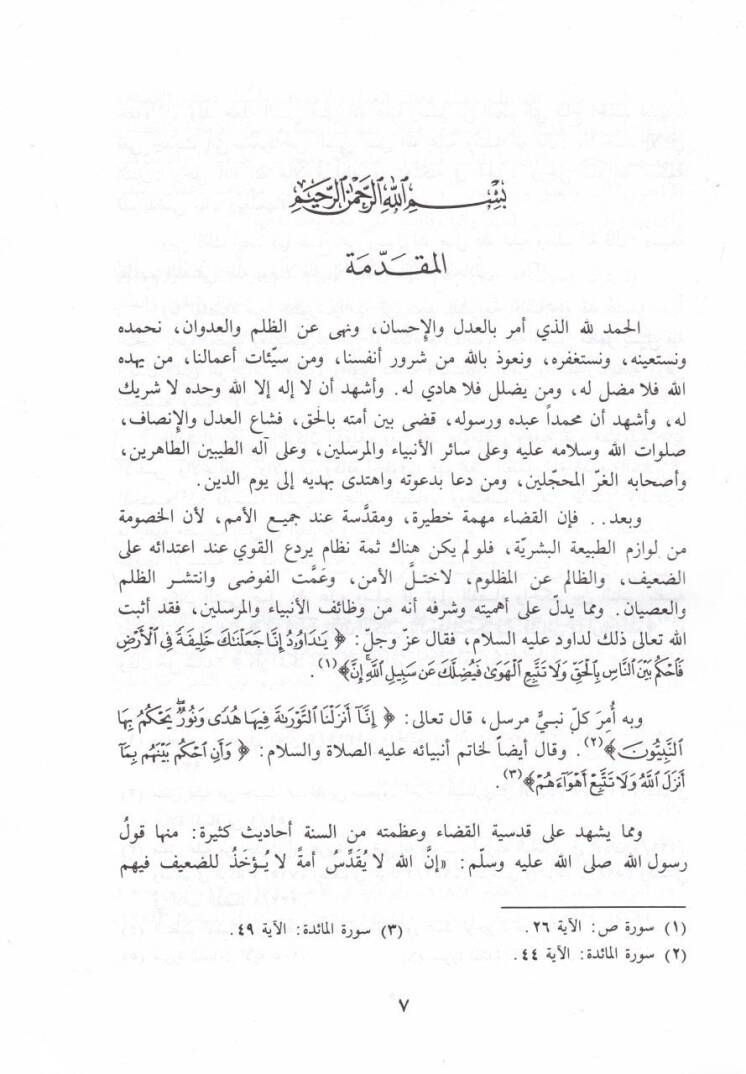 بسم الله الرحمن الرحيم
المقدّمة
الحمد لله الذي أمر بالعدل والإحسان، ونهى عن الظلم والعدوان، نحمده
ونستعينه، ونستغفره، ونعوذ بالله من شرور أنفسنا، ومن سيّئات أعمالنا، من يهده
الله فلا مضل له، ومن يضلل فلا هادي له. وأشهد أن لا إله إلا الله وحده لا شريك
له، وأشهد أن محمداً عبده ورسوله، قضى بين أمته بالحق، فشاع العدل والإنصاف،
صلوات الله وسلامه عليه وعلى سائر الأنبياء والمرسلين، وعلى آله الطيبين الطاهرين،
وأصحابه الغرّ المحجّلين، ومن دعا بدعوته واهتدى بهديه إلى يوم الدين.
وبعد.. فإن القضاء مهمة خطيرة، ومقدَّسة عند جميع الأمم، لأن الخصومة
من لوازم الطبيعة البشريّة، فلو لم يكن هناك ثمة نظام يردع القوي عند اعتدائه على
الضعيف، والظالم عن المظلوم، لاختلَّ الأمن، وعَمَّت الفوضى وانتشر الظلم
والعصيان. ومما يدلّ على أهميته وشرفه أنه من وظائف الأنبياء والمرسلين، فقد أثبت
الله تعالى ذلك لداود عليه السلام، فقال عز وجلّ: ﴿ يَٰدَاوُۥدُ إِنَّا جَعَلْنَٰكَ خَلِيفَةً فِي الْأَرْضِ
فَاحْكُم بَيْنَ النَّاسِ بِالْحَقِّ وَلَا تَتَّبِعِ الْهَوَىٰ فَيُضِلَّكَ عَن سَبِيلِ اللَّهِ إِنَّ﴾(١).
وبه أُمِرَ كلّ نبيّ مرسل، قال تعالى: ﴿ إِنَّا أَنزَلْنَا التَّوْرَىٰةَ فِيهَا هُدًى وَنُورٌ يَحْكُمُ بِهَا
النَّبِيُّونَ﴾(٢). وقال أيضاً لخاتم أنبيائه عليه الصلاة والسلام: ﴿ وَأَنِ احْكُم بَيْنَهُم بِمَا
أَنزَلَ اللَّهُ وَلَا تَتَّبِعْ أَهْوَاءَهُمْ﴾(٣).
ومما يشهد على قدسية القضاء وعظمته من السنة أحاديث كثيرة: منها قولُ
رسول الله صلى الله عليه وسلّم: «إنَّ الله لا يُقَدِّسُ أمةً لا يُؤخَذُ للضعيف فيهم
(١) سورة ص: الآية ٢٦.
(٢) سورة المائدة: الآية ٤٤.
(٣) سورة المائدة: الآية ٤٩.
٧